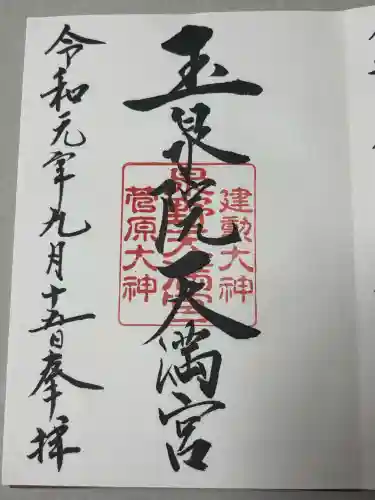 玉泉院天満宮
建勲大神
菅原大神
令和元年九月十五日奉拝